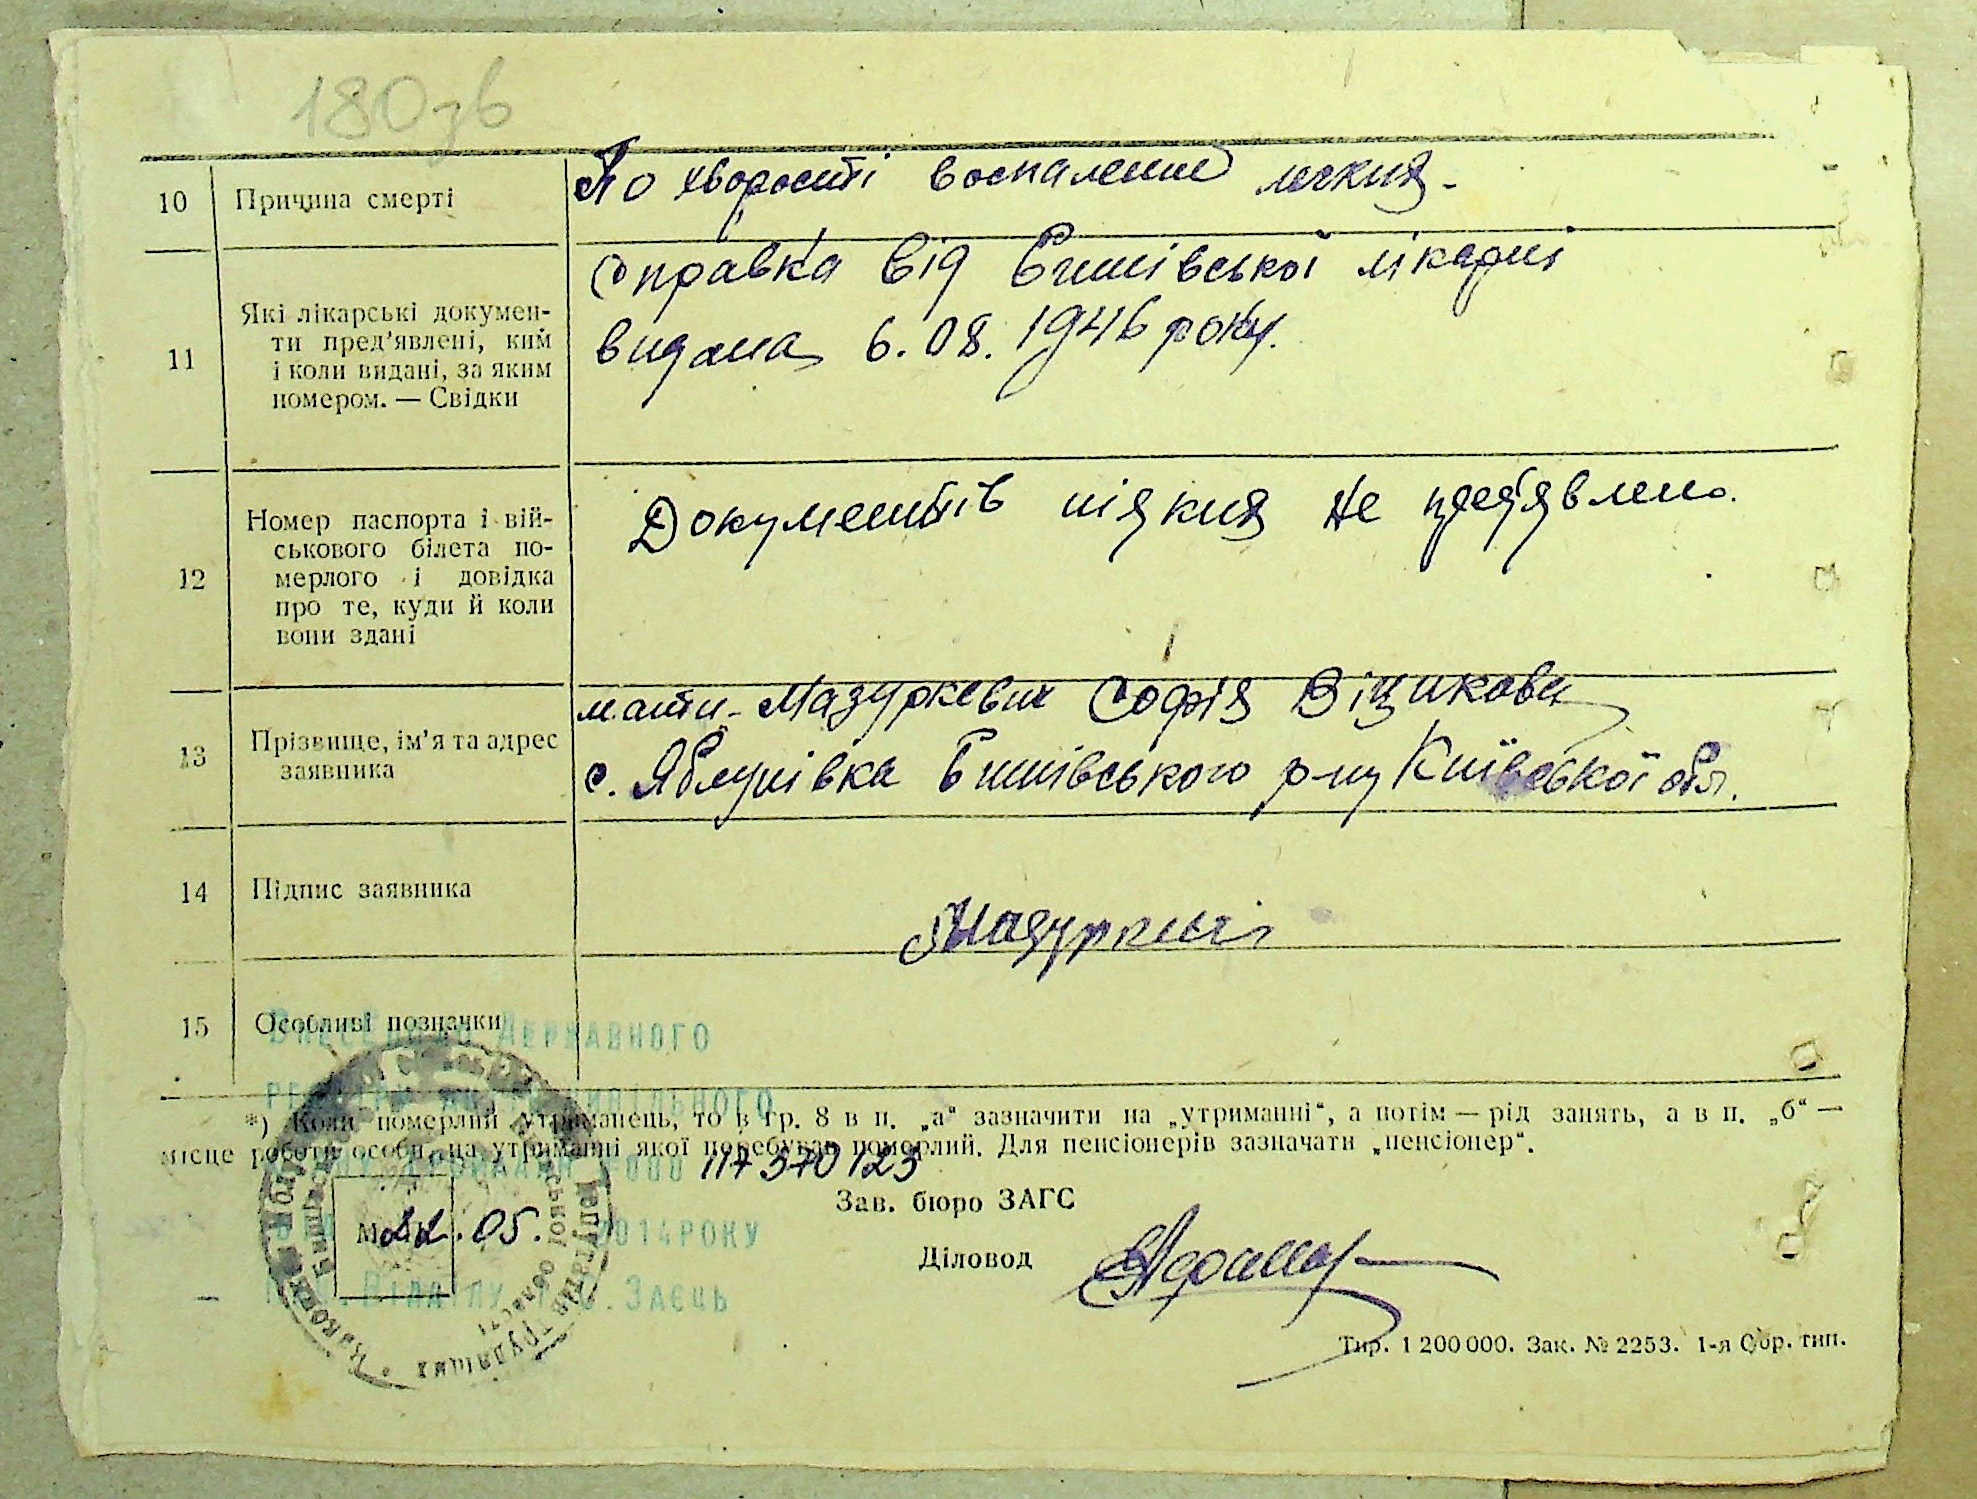 180зв
10 Причина смерті По хворості воспаление легких.
11 Які лікарські докумен-
ти пред’явлені, ким
і коли видані, за яким
номером. — Свідки
Справка від Бишівської лікарні
видана 6.08.1946 року.
12 Номер паспорта і вій-
ськового білета по-
мерлого і довідка
про те, куди й коли
вони здані
Документів ніяких не пред'явлено.
13 Прізвище, ім’я та адрес
заявника
мати - Мазуркевич Софія
с. Яблунівка Бишівського р-ну Київської обл.
14 Підпис заявника
15 Особливі позначки
Внесено до Державного
*) Коли померлий утриманець, то в гр. 8 в п. „а“ зазначити на „утриманні“, а потім — рід занять, а в п. „б“ —
місце роботи особи, на утриманні якої перебував померлий. Для пенсіонерів зазначати „пенсіонер“.
Зав. бюро ЗАГС
22.05. 2014 РОКУ
Діловод
Заєць
Тир. 1 200 000. Зак. № 2253. 1-я Обр. тип.